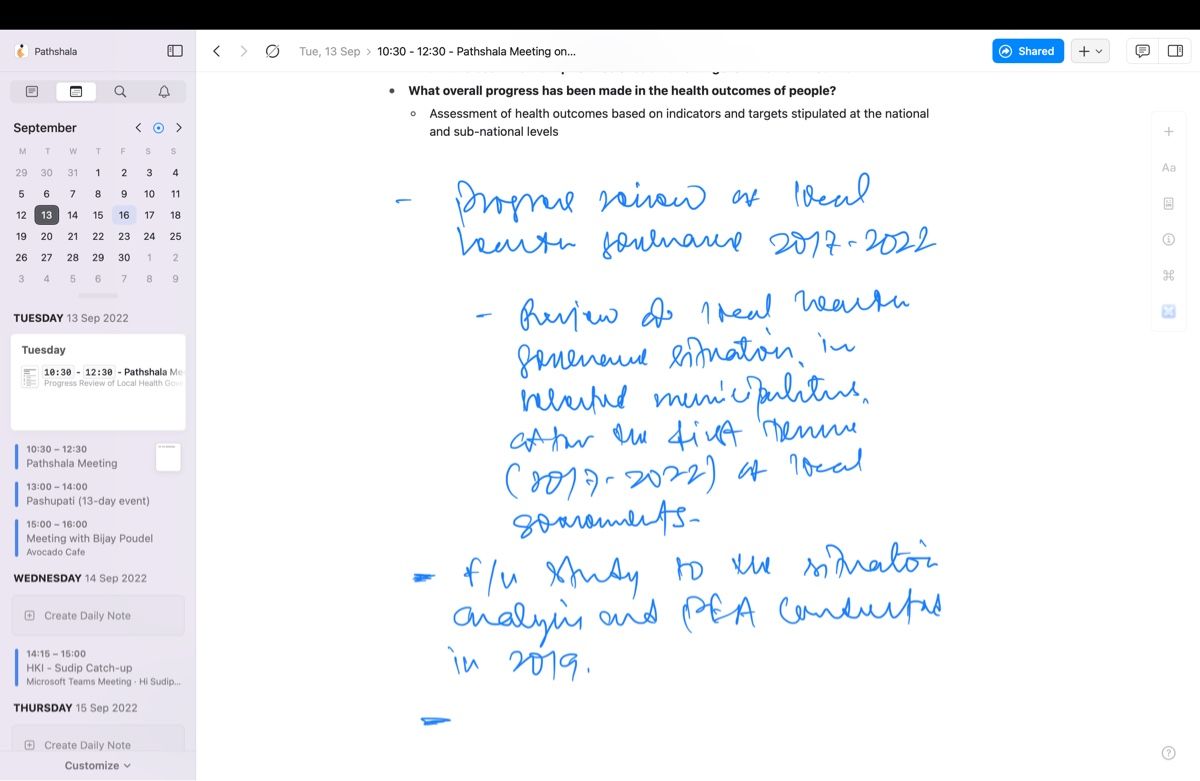 Pathshala
Tue, 13 Sep > 10:30 - 12:30 - Pathshala Meeting on...
Shared
September
M T W T F S S
29 30 31 1 2 3 4
5 6 7 8 9 10 11
12 13 14 15 16 17 18
19 20 21 22 23 24 25
26 27 28 29 30 1 2
3 4 5 6 7 8 9
TUESDAY 13 Sep 2022
Tuesday
10:30 - 12:30 - Pathshala Me
Progress Review of Local Health Gov
10:30 – 12:30
Pathshala Meeting
13:00 – 14:00
Pashupati (13-day event)
15:00 – 16:00
Meeting with Bijay Poudel
Avocado Cafe
WEDNESDAY 14 Sep 2022
Create Daily Note
14:15 – 15:00
HKI - Sudip Catch-up
Microsoft Teams Meeting · Hi Sudip...
THURSDAY 15 Sep 2022
Create Daily Note
Customize
• What overall progress has been made in the health outcomes of people?
Assessment of health outcomes based on indicators and targets stipulated at the national
and sub-national levels
- Progress review of local
health governance 2017-2022
- Review of local health
governance situation in
selected municipalities,
after the first tenure
(2017-2022) of local
governments-
- f/u study to the situation
analysis and PEA conducted
in 2019.
-
Aa